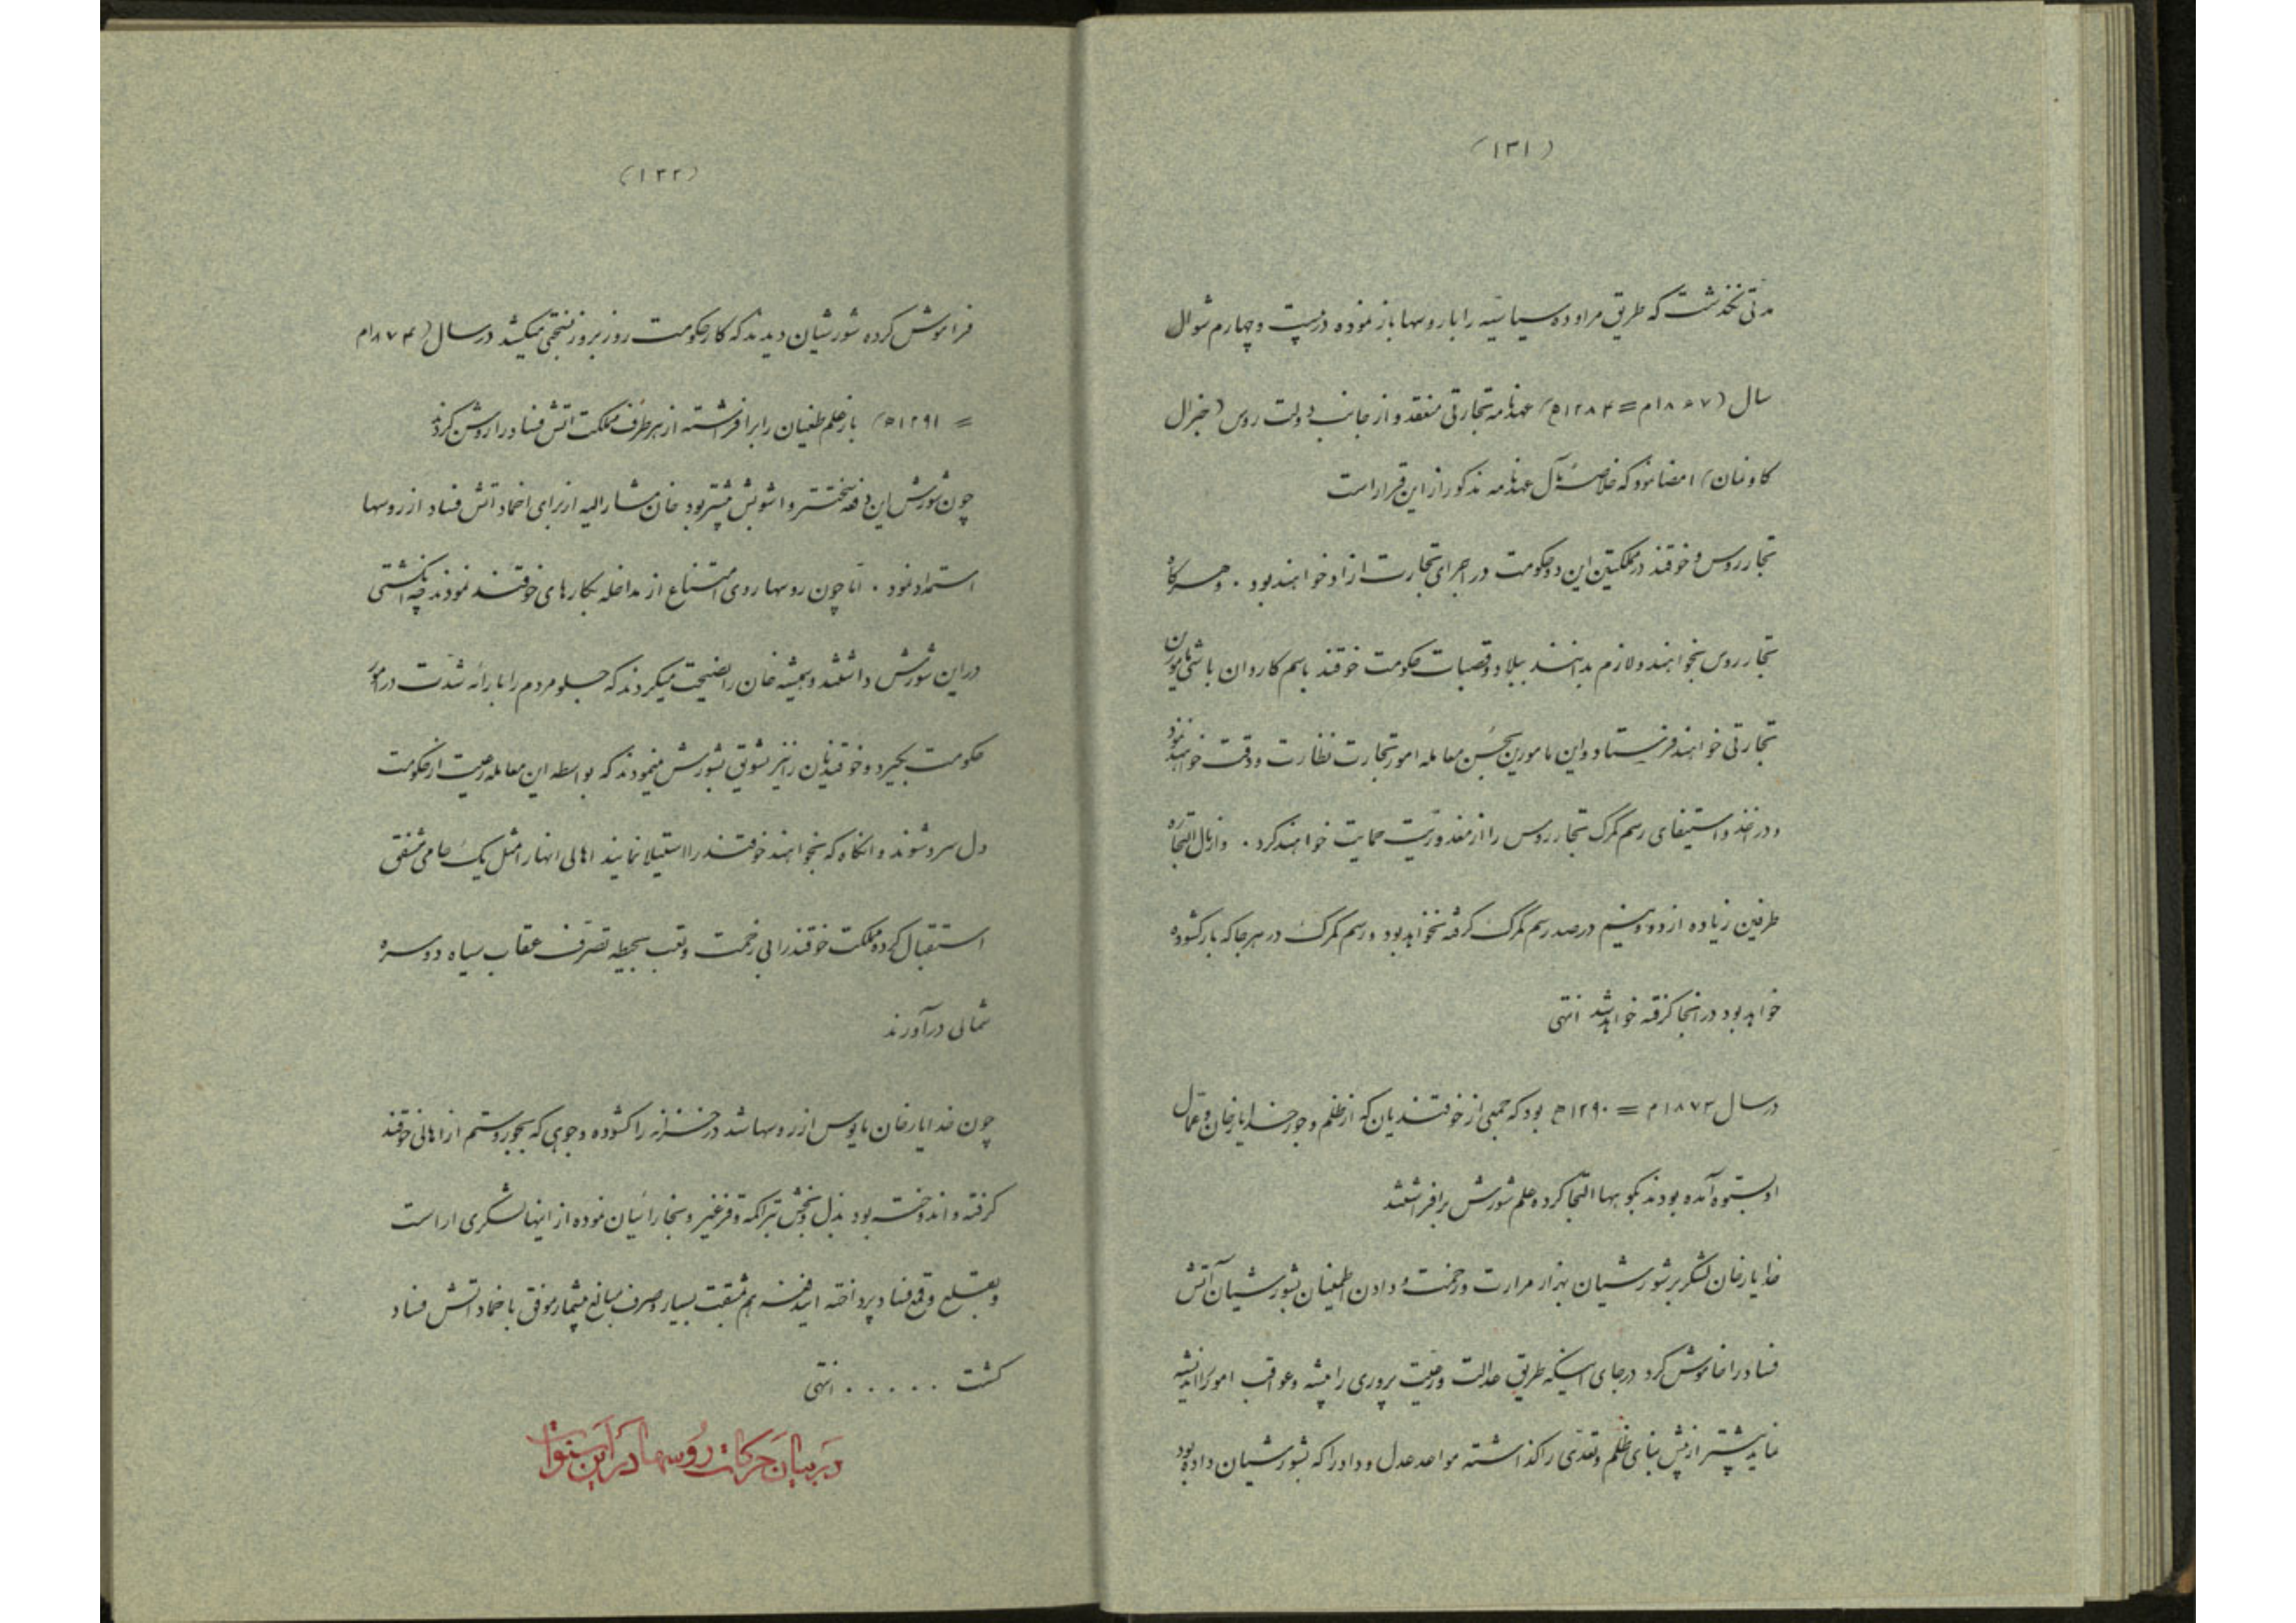 (۱۳۱)
مدتی نگذشت که طریق مراوده سیاسیه را با روسها باز نموده در بیست و چهارم شوال
سال (۱۸۶۷م = ۱۲۸۴ه) عهدنامه تجارتی منعقد و از جانب دولت روس (جنرال
کاوفمان) امضا نمود که خلاصه مآل عهدنامه مذکور از این قرار است
تجار روس و خوقند در مملکتین این دو حکومت در اجرای تجارت ازاد خواهند بود . و هرکاه
تجار روس بخواهند و لازم بدانند ببلاد و قصبات حکومت خوقند باسم کاروان باشی مامورین
تجارتی خواهند فرستاد و این مامورین بحسن معامله امور تجارت نظارت و دقت خواهند نمود
و در اخذ و استیفای رسم کمرک تجار روس را از مغدوریت حمایت خواهند کرد . و از مال التجاره
طرفین زیاده از دو و نیم درصد رسم کمرک کرفته نخواهد بود و رسم کمرک در هر جا که بار کشوده
خواهد بود در انجا کرفته خواهد شد انتهی
در سال ۱۸۷۳م = ۱۲۹۰ه بود که جمعی از خوقندیان که از ظلم و جور خدایار خان و عمال
او بستوه آمده بودند بکوهها التجا کرده علم شورش برافراشتند
خدایار خان لشکر بر شورشیان بهزار مرارت و زحمت و دادن اطمینان بشورشیان آتش
فساد را خاموش کرد در جای اینکه طریق عدالت و رعیت پروری را پیشه و عواقب امور را اندیشه
نماید بیشتر از پیش بنای ظلم و تعدی را کذاشته مواعد عدل و داد را که بشورشیان داده بود
(۱۳۲)
فراموش کرده شورشیان دیدند که کار حکومت روز بروز بسختی میکشد در سال (۱۸۷۴م
= ۱۲۹۱ه) باز علم طغیان را برافراشته از هر طرف مملکت اتش فساد را روشن کردند
چون شورش این دفعه سختتر و اشوبش بیشتر بود خان مشار الیه از برای اخماد اتش فساد از روسها
استمداد نمود . اما چون روسها روی امتناع از مداخله بکارهای خوقند نمودند چه انکشتی
در این شورش داشتند و همیشه خان را نصیحت میکردند که جلو مردم را بارائه شدت در امور
حکومت بگیرد و خوقندیان را نیز تشویق بشورش مینمودند که بواسطه این معامله رعیت از حکومت
دل سرد شوند و انکاه که بخواهند خوقند را استیلا نمایند اهالی انها را مثل یک حامی مشفقی
استقبال کرده مملکت خوقند را بی زحمت و تعب بحیطه تصرف عقاب سیاه دو سره
شمالی درآورند
چون خدایار خان مایوس از روسها شد در خزانه را کشوده وجوهی که بجور و ستم از اهالی خوقند
کرفته و اندوخته بود بذل و بخشش تراکمه و قرغیز و بخارائیان نموده از اینها لشکری اراست
و بقلع و قمع فساد پرداخته ایندفعه هم بمشقت بسیار و صرف مبالغ بیشمار موفق باخماد اتش فساد
کشت . . . . . انتهی
در بیان حرکات روسها در این سنوات